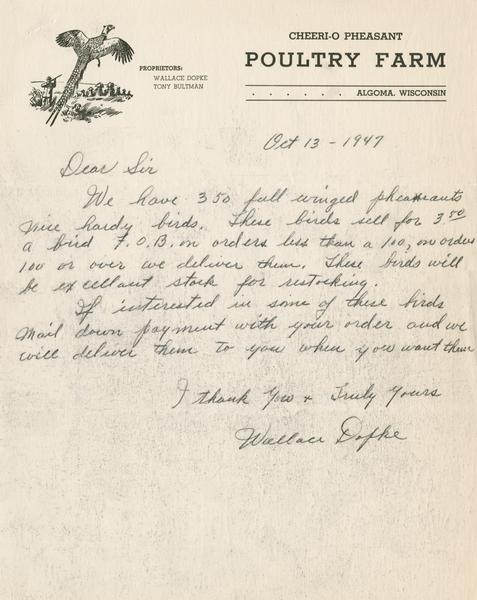 CHEERI-O PHEASANT
POULTRY FARM
PROPRIETORS:
WALLACE DOPKE
TONY BULTMAN
. . . . . . ALGOMA, WISCONSIN
Oct 13 - 1947
Dear Sir
We have 350 full winged pheasants
nice hardy birds. These birds sell for 3.50
a bird F.O.B. on orders less than a 100, on orders
100 or over we deliver them. These birds will
be excellant stock for restocking.
If interested in some of these birds
Mail down payment with your order and we
will deliver them to you when you want them
I thank you & Truly Yours
Wallace Dopke